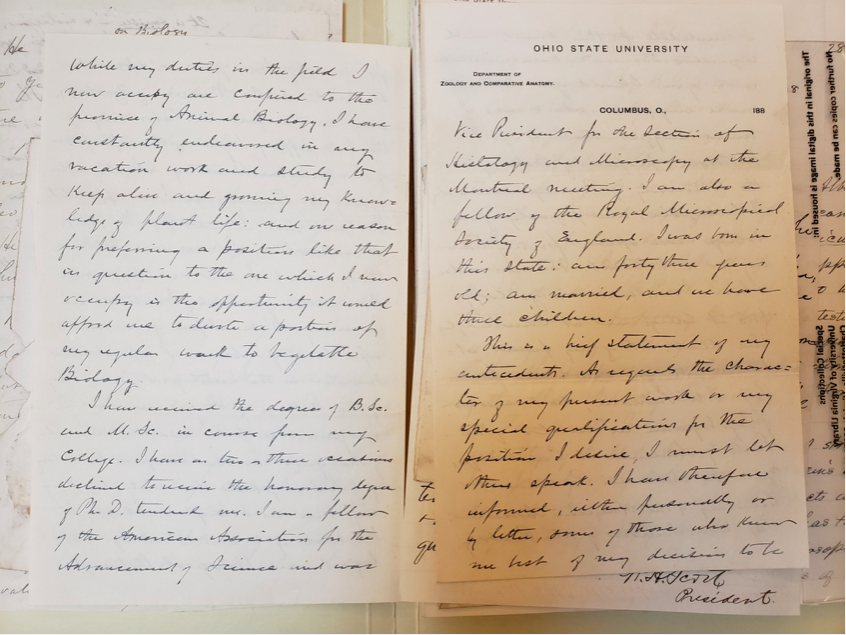 on Biology
while my duties in the field I
now occupy are confined to the
province of Animal Biology, I have
constantly endeavored in my
vacation work and study to
keep alive and growing my know-
ledge of plant life: and one reason
for preferring a position like that
in question to the one which I now
occupy is the opportunity it would
afford me to devote a portion of
my regular work to vegetable
Biology.
I have received the degrees of B.Sc.
and M.Sc. in course from my
College. I have on two or three occasions
declined to receive the honorary degree
of Ph.D. tendered me. I am a fellow
of the American Association for the
Advancement of Science and was
OHIO STATE UNIVERSITY
DEPARTMENT OF
ZOOLOGY AND COMPARATIVE ANATOMY.
COLUMBUS, O., 188
Vice President for the section of
Histology and Microscopy at the
Montreal meeting. I am also a
fellow of the Royal Microscopical
Society of England. I was born in
this state: am forty three years
old; am married, and we have
three children.
This is a brief statement of my
antecedents. As regards the charac=
ter of my present work or my
special qualifications for the
position I desire, I must let
others speak. I have therefore
informed, either personally or
by letter, some of those who know
me best of my decision to be
W.H. Scott,
President.
The original of this digital image is housed in:
No further copies can be made
Special Collections
University of Virginia Library